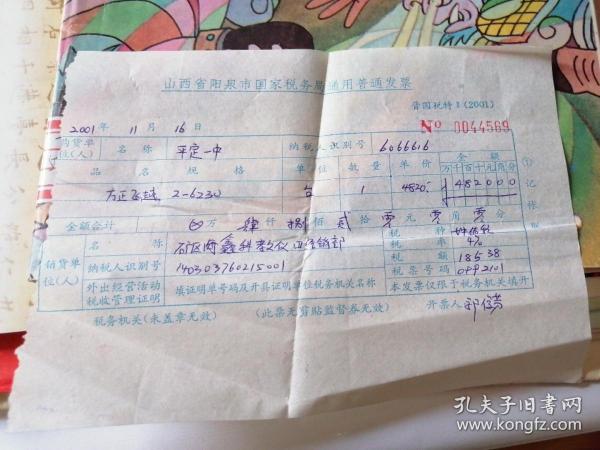 山西省阳泉市国家税务局通用普通发票
晋国税特 1 (2001)
2001 年 11 月 16 日
№ 0044569
购货单位(人) 名称 平定一中 纳税人识别号 6066616
品名 规格 单位 数量 单价 金额
万 千 百 十 元 角 分
方正飞越 2-6230 台 1 4820 482000
金额合计 万 肆 仟 捌 佰 贰 拾 零 元 零 角 零 分
销货单位(人)
名称
税种 增值税
纳税人识别号 140303760215001
税率 4%
税额 185.38
外出经营活动税收管理证明
填证明单号码及开具证明单位税务机关名称
税票号码
本发票仅限于税务机关填开
税务机关(未盖章无效) (此票无剪贴监督券无效) 开票人
① 记
孔夫子旧书网
www.kongfz.com